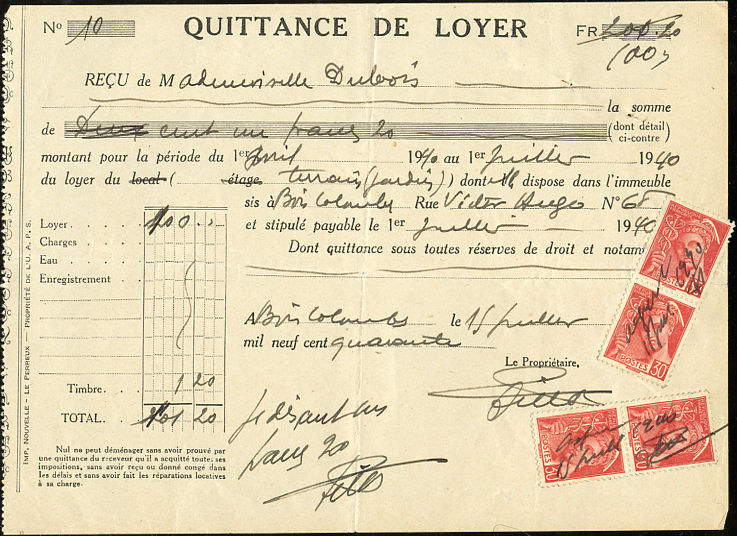 No 10 QUITTANCE DE LOYER FR 200.20
100
REÇU de Mademoiselle Dubois
la somme
de Deux cent un francs 20 (dont détail ci-contre)
montant pour la période du 1er Avril 1940 au 1er Juillet 1940
du loyer du local ( étage terrain (jardin) ) dont elle dispose dans l'immeuble
sis à Bois Colombes Rue Victor Hugo N° 68
et stipulé payable le 1er Juillet 1940
Dont quittance sous toutes réserves de droit et notam
Loyer 100
Charges
Eau
Enregistrement
Timbre 1 20
TOTAL 101 20
A Bois Colombes le 15 juillet
mil neuf cent quarante
Le Propriétaire,
Je dis cent un
francs 20
Nul ne peut déménager sans avoir prouvé par
une quittance du receveur qu'il a acquitté toutes ses
impositions, sans avoir reçu ou donné congé dans
les délais et sans avoir fait les réparations locatives
à sa charge.
IMP. NOUVELLE - LE PERREUX - PROPRIÉTÉ DE L'U. A. P. S.
POSTES 30
POSTES